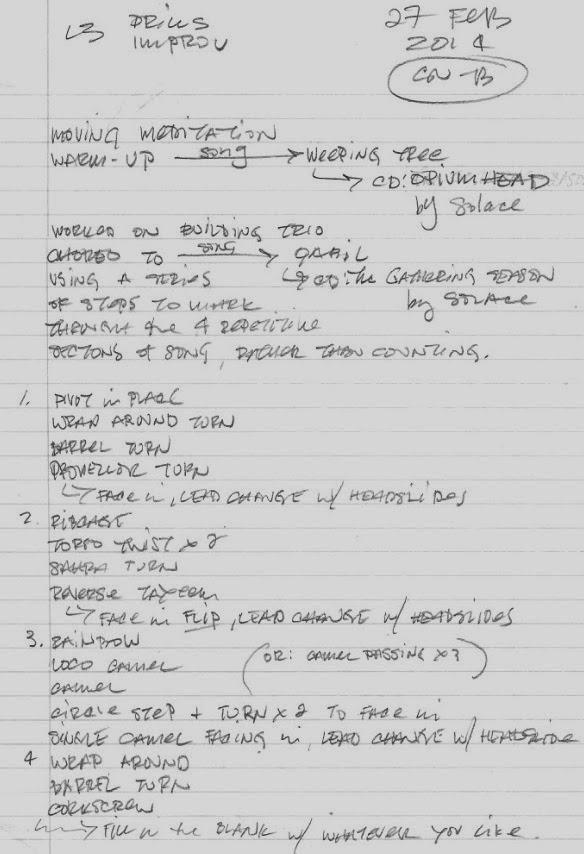 L3 DRILLS
IMPROV
27 FEB
2014
MOVING MEDITATION
WARM-UP song → WEEPING TREE
↳ CD: OPIUM HEAD
by Solace
WORKED ON BUILDING TRIO
CHOREO TO song → QABIL
USING A SERIES ↳ CD: the GATHERING SEASON
OF STEPS TO MARK by SOLACE
THROUGH the 4 REPETITIVE
SECTIONS of SONG, RATHER THAN COUNTING.
1. PIVOT in PLACE
WRAP AROUND TURN
BARREL TURN
PROPELLOR TURN
↳ FACE in, LEAD CHANGE w/ HEADSLIDES
2. RIBCAGE
TORSO TWIST x 2
SAHRA TURN
REVERSE TAXEEM
↳ FACE in FLIP, LEAD CHANGE w/ HEADSLIDES
3. RAINBOW
LOCO CAMEL (OR: CAMEL PASSING x3)
CAMEL
CIRCLE STEP + TURN x 2 TO FACE in,
SINGLE CAMEL FACING in, LEAD CHANGE w/ HEADSLIDE
4 WRAP AROUND
BARREL TURN
CORKSCREW
↳ FILL in the BLANK w/ WHATEVER YOU LIKE.